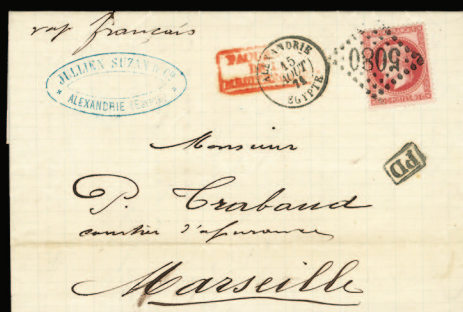 vap français
JULLIEN SUZAN & Cie
* ALEXANDRIE (EGYPTE) *
ALEXANDRIE
15
AOUT
71
EGYPTE
5080
PD
Monsieur
P. Trabaud
courtier d'assurance
Marseille